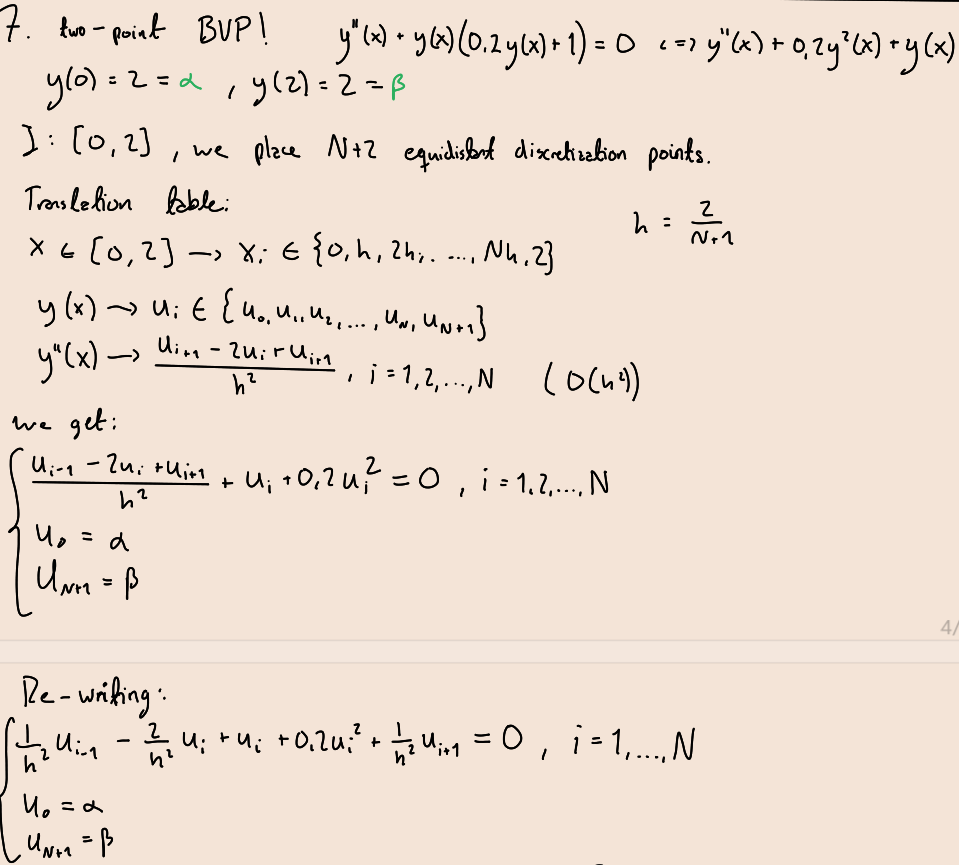 7. two-point BVP! y''(x) + y(x)(0.2y(x)+1) = 0 <=> y''(x) + 0,2y²(x) + y(x)
y(0) = 2 = α , y(2) = 2 = β
I: [0,2] , we place N+2 equidistant discretization points.
Translation table:
h = 2/(N+1)
x ∈ [0,2] → x_i ∈ {0, h, 2h, ..., Nh, 2}
y(x) → u_i ∈ {u_0, u_1, u_2, ..., u_N, u_{N+1}}
y''(x) → (u_{i+1} - 2u_i + u_{i+1})/h² , i = 1,2,...,N (O(h²))
we get:
(u_{i-1} - 2u_i + u_{i+1})/h² + u_i + 0,2u_i² = 0 , i = 1,2,...,N
u_0 = α
u_{N+1} = β
4/
Re-writing:
1/h² u_{i-1} - 2/h² u_i + u_i + 0.2u_i² + 1/h² u_{i+1} = 0 , i = 1,...,N
u_0 = α
u_{N+1} = β